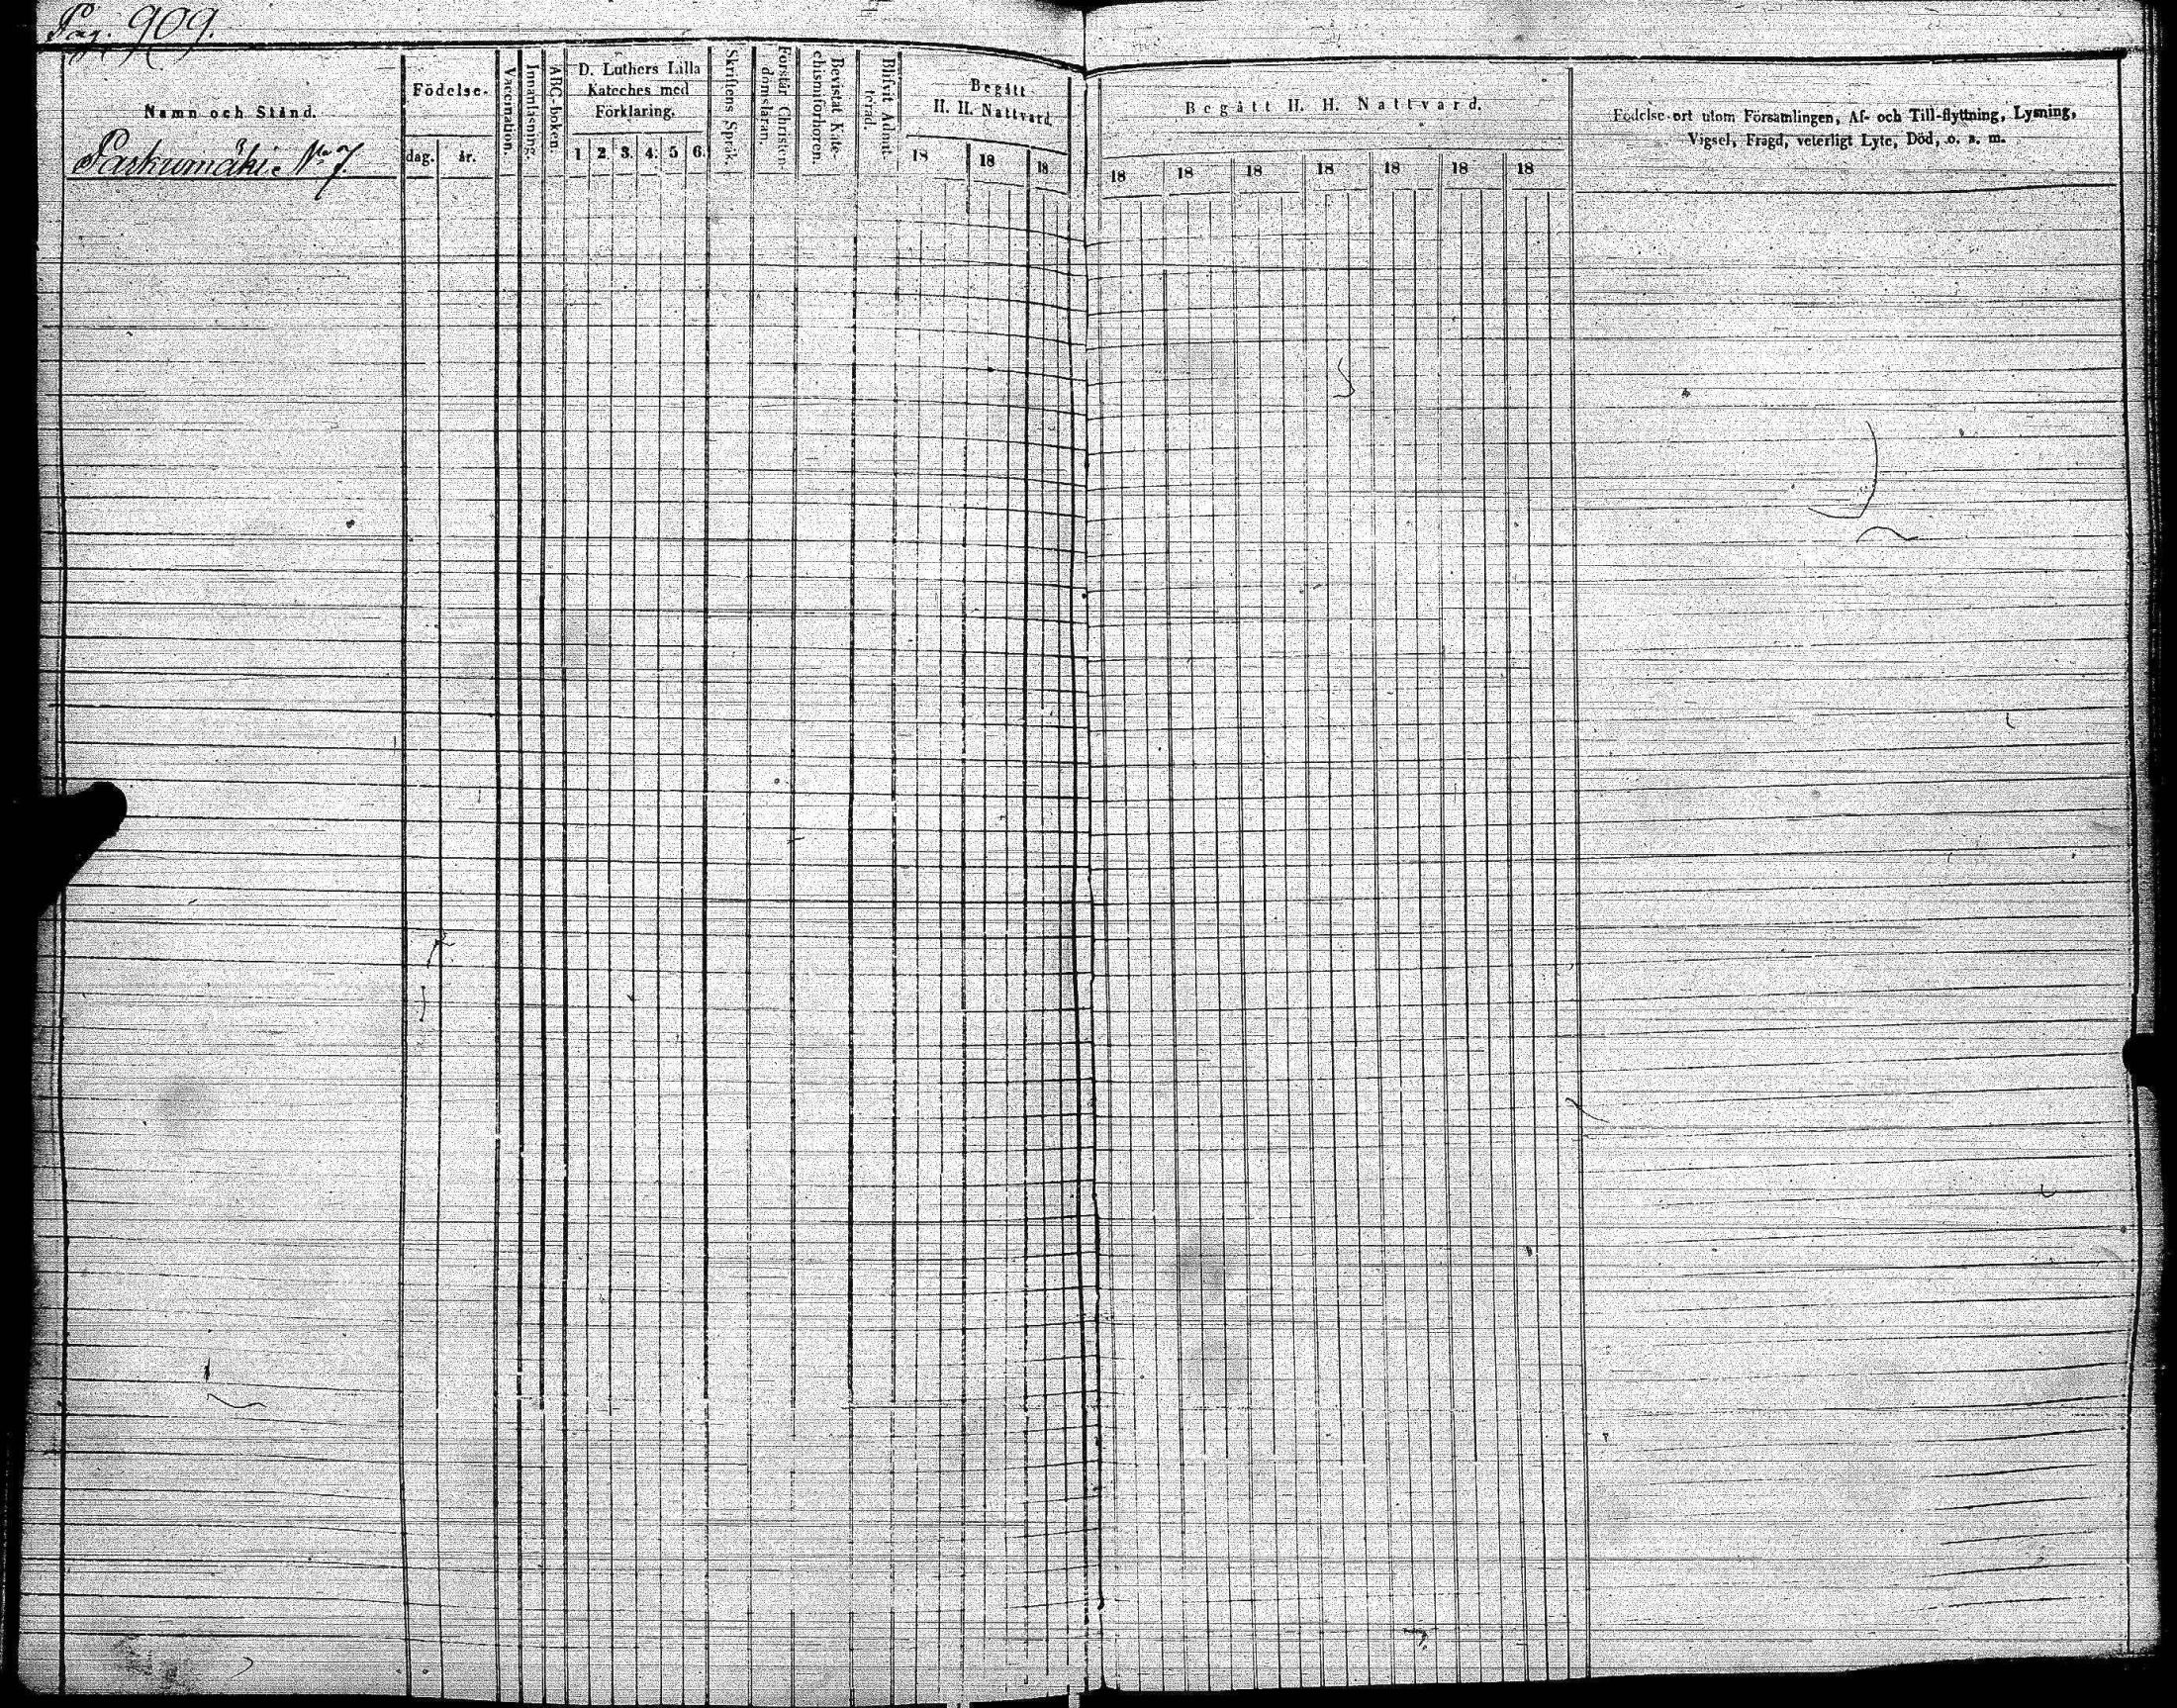 Pag. 909.
Namn och Stånd.
Födelse-
dag. år.
Vaccination.
Innanläsning.
ABC-boken.
D. Luthers Lilla
Kateches med
Förklaring.
1 2. 3. 4. 5 6.
Skriftens Språk.
Förstår Christen-
domsläran.
Bevistat Kate-
chismiförhören.
Blifvit Admit-
terad.
Begått
H. H. Nattvard.
18 18 18
Begått H. H. Nattvard.
18 18 18 18 18 18 18
Födelse-ort utom Församlingen, Af- och Till-flyttning, Lysning,
Vigsel, Frägd, veterligt Lyte, Död, o. s. m.
No 7.